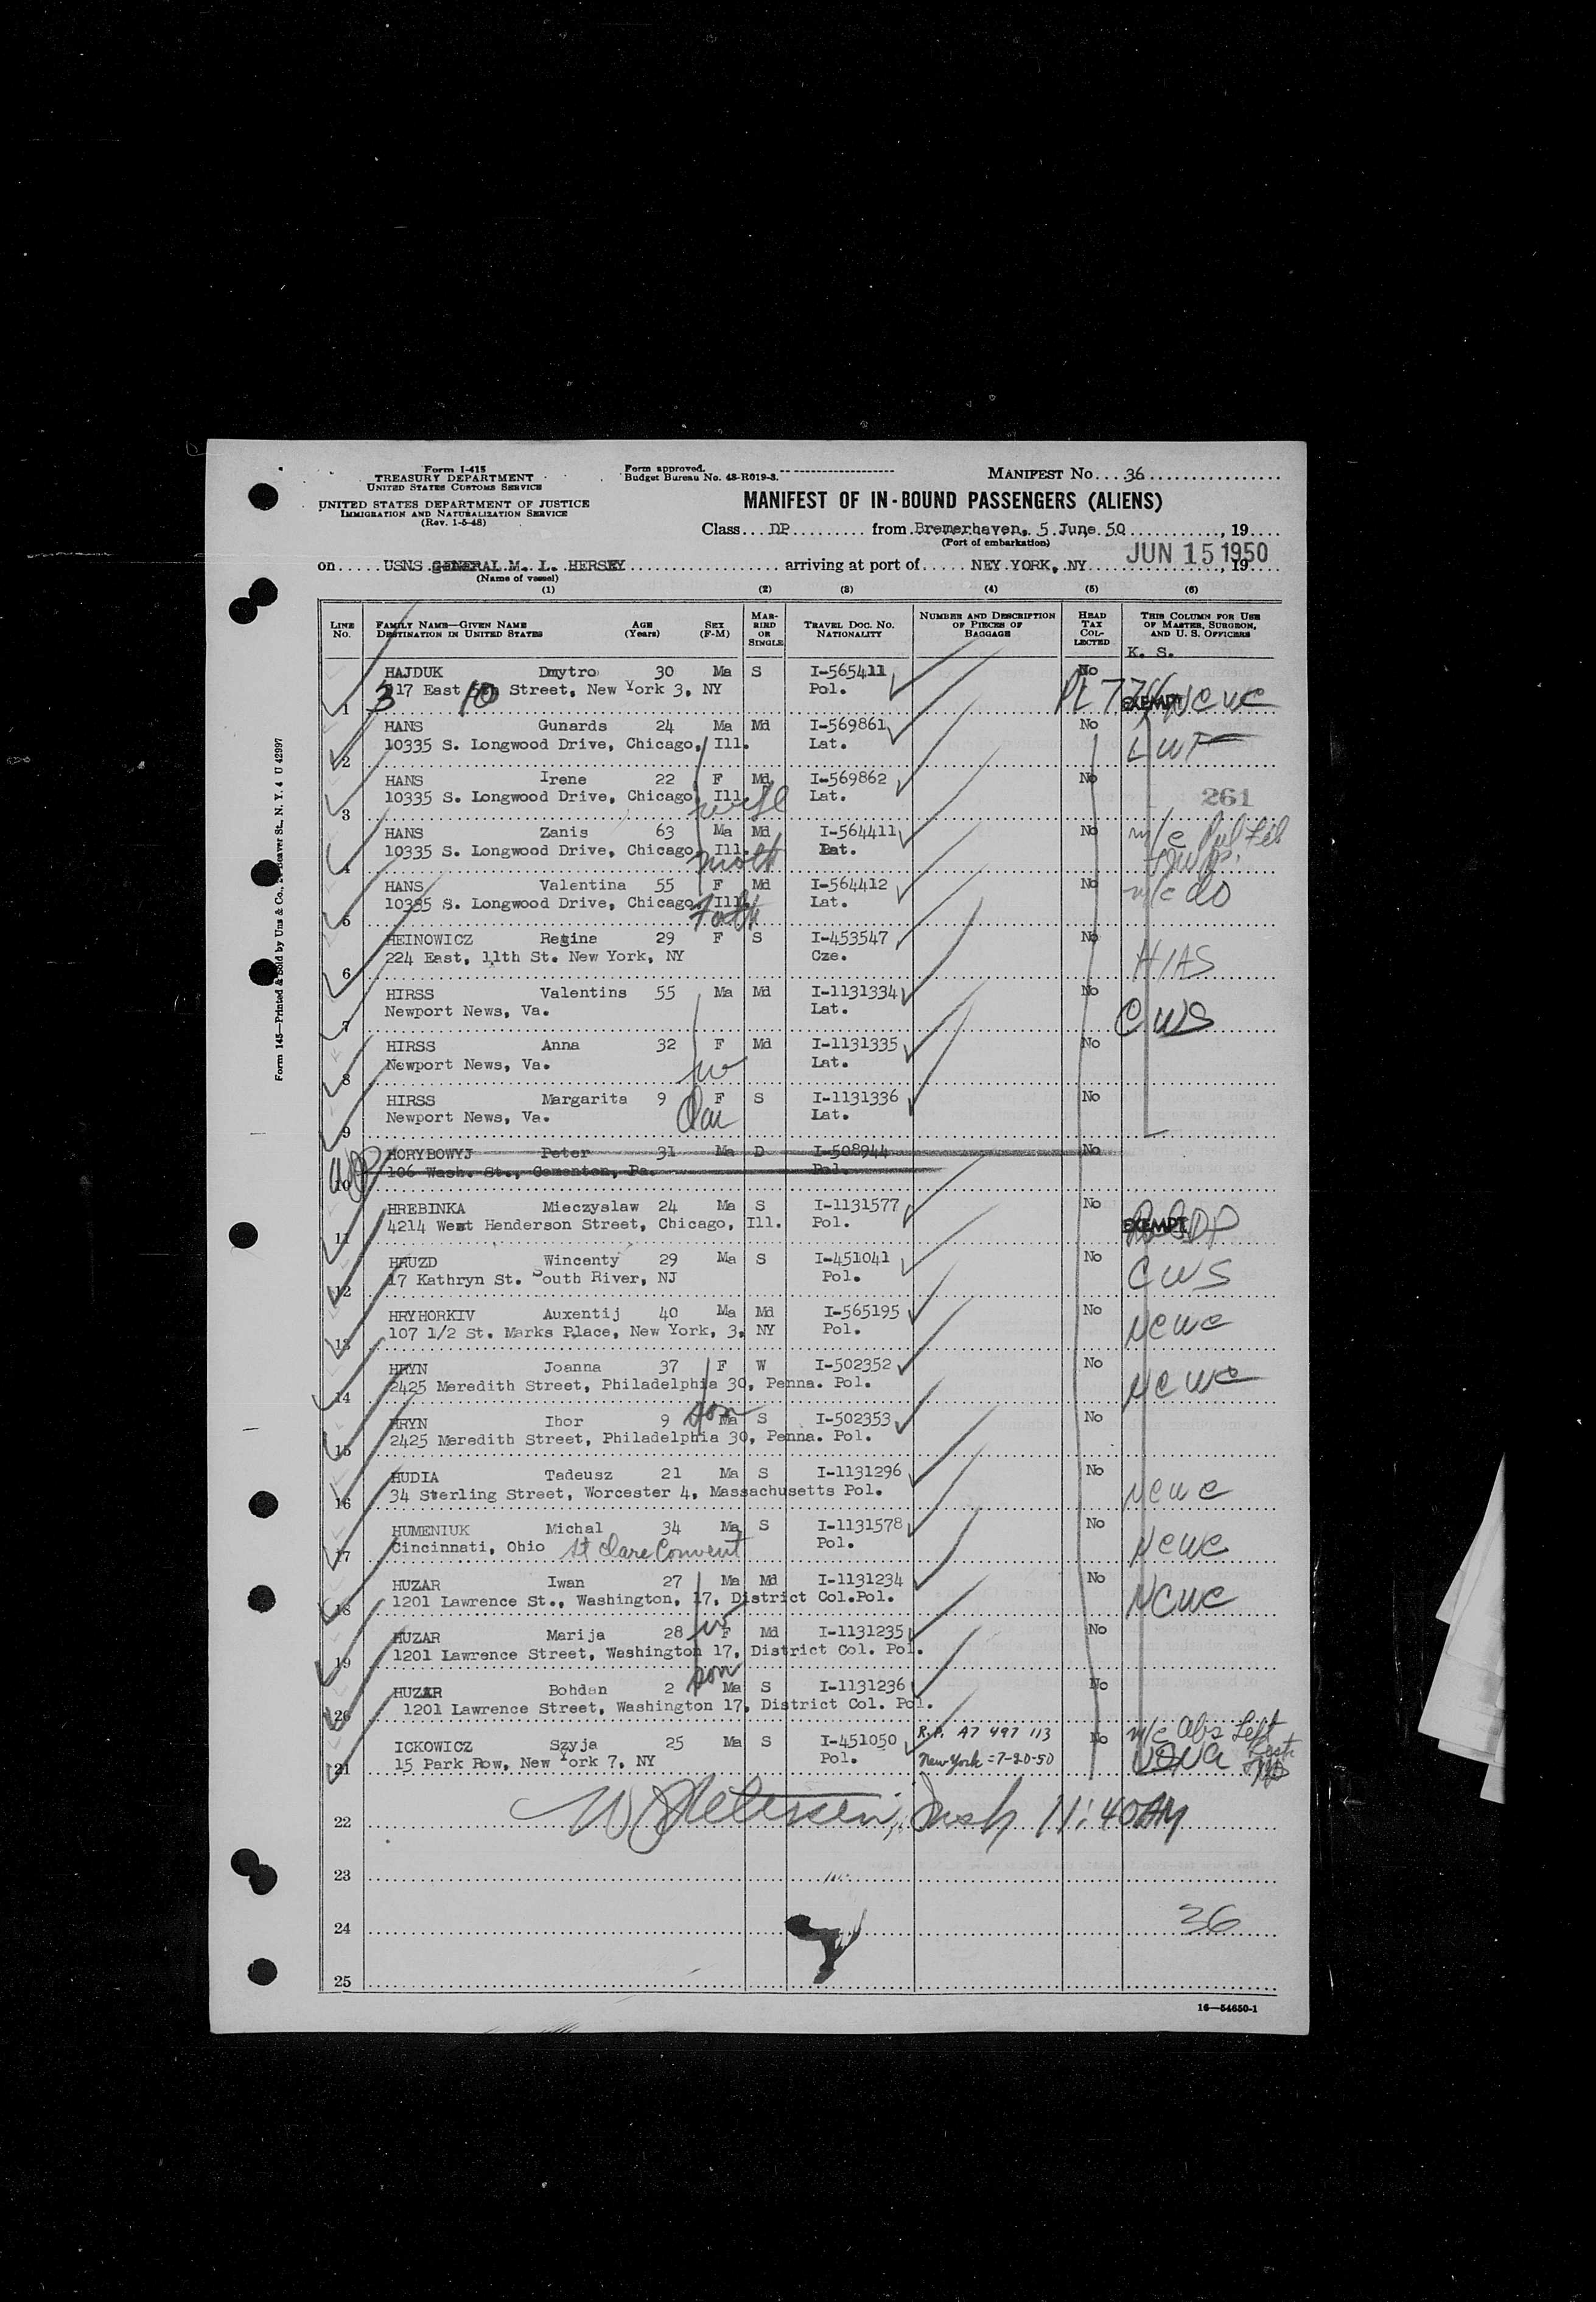 Form I-415
TREASURY DEPARTMENT
UNITED STATES CUSTOMS SERVICE
UNITED STATES DEPARTMENT OF JUSTICE
IMMIGRATION AND NATURALIZATION SERVICE
(Rev. 1-5-48)
Form approved.
Budget Bureau No. 43-R019-3.
MANIFEST No. 36
MANIFEST OF IN-BOUND PASSENGERS (ALIENS)
Class DP from Bremerhaven, 5 June 50, 19
(Port of embarkation)
JUN 15 1950
on USNS GENERAL M. L. HERSEY arriving at port of NEY YORK, NY, 19
(Name of vessel)
(1) (2) (3) (4) (5) (6)
LINE No. FAMILY NAME—GIVEN NAME DESTINATION IN UNITED STATES AGE (Years) SEX (F-M) MARRIED OR SINGLE TRAVEL DOC. NO. NATIONALITY NUMBER AND DESCRIPTION OF PIECES OF BAGGAGE HEAD TAX COLLECTED THIS COLUMN FOR USE OF MASTER, SURGEON, AND U. S. OFFICERS
K. S.
HAJDUK Dmytro 30 Ma S I-565411 No
1 317 East 10 Street, New York 3, NY Pol. EXEMPT NCWC
HANS Gunards 24 Ma Md I-569861 No
2 10335 S. Longwood Drive, Chicago, Ill. Lat. LWF
HANS Irene 22 F Md I-569862 No
3 10335 S. Longwood Drive, Chicago, Ill. wife Lat. 261
HANS Zanis 63 Ma Md I-564411 No m/c
4 10335 S. Longwood Drive, Chicago, Ill. moth Lat.
HANS Valentina 55 F Md I-564412 No m/c do
5 10335 S. Longwood Drive, Chicago, Ill. Fath Lat.
HEINOWICZ Regine 29 F S I-453547 No
6 224 East, 11th St. New York, NY Cze. HIAS
HIRSS Valentins 55 Ma Md I-1131334 No
7 Newport News, Va. Lat. CWS
HIRSS Anna 32 F Md I-1131335 No
8 Newport News, Va. w Lat.
HIRSS Margarita 9 F S I-1131336 No
9 Newport News, Va. Dau Lat.
HORYBOWYJ Peter 31 Ma D I-508944 No
10 106 Wash. St., Cementon, Pa. Pol.
HREBINKA Mieczyslaw 24 Ma S I-1131577 No
11 4214 West Henderson Street, Chicago, Ill. Pol. EXEMPT
HRUZD Wincenty 29 Ma S I-451041 No
12 17 Kathryn St. South River, NJ Pol. CWS
HRYHORKIV Auxentij 40 Ma Md I-565195 No
13 107 1/2 St. Marks Place, New York, 3, NY Pol. NCWC
HRYN Joanna 37 F W I-502352 No
14 2425 Meredith Street, Philadelphia 30, Penna. Pol. NCWC
HRYN Ihor 9 son Ma S I-502353 No
15 2425 Meredith Street, Philadelphia 30, Penna. Pol.
HUDIA Tadeusz 21 Ma S I-1131296 No
16 34 Sterling Street, Worcester 4, Massachusetts Pol. NCWC
HUMENIUK Michal 34 Ma S I-1131578 No
17 Cincinnati, Ohio St Clare Convent Pol. NCWC
HUZAR Iwan 27 Ma Md I-1131234 No
18 1201 Lawrence St., Washington, 17, District Col.Pol. NCWC
HUZAR Marija 28 w F Md I-1131235 No
19 1201 Lawrence Street, Washington 17, District Col. Pol.
HUZAR Bohdan 2 son Ma S I-1131236 No
20 1201 Lawrence Street, Washington 17, District Col. Pol.
ICKOWICZ Szyja 25 Ma S I-451050 R.P. A7 497 113 No m/c Abs Left
21 15 Park Row, New York 7, NY Pol. New York = 7-20-50 USNA
22 11:40AM
23
24 36
25
16—54650-1
Form 145—Printed & Sold by Unz & Co., Beaver St., N. Y. 4 U 42997